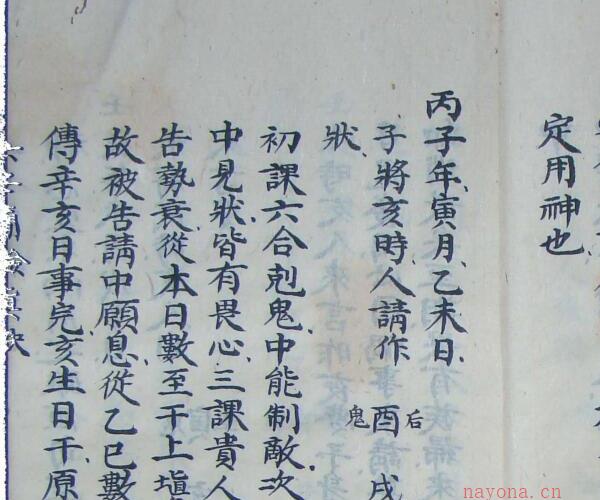 定用神也
丙子年寅月乙未日
子將亥時人請作 酉 戌
后
鬼
狀
初課六合剋鬼中能制敵次
中見狀皆有畏心三課貴人
告勢衰從本日數至干上填
故被告請中願息從乙巳數
傳辛亥日事完亥生日干原
nayona.cn